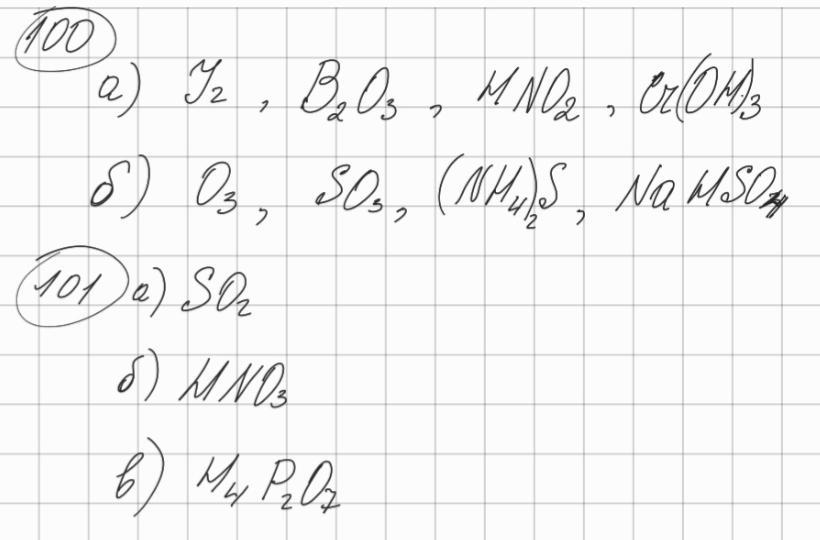 100
а) J₂, B₂O₃, HNO₂, Cr(OH)₃
б) O₃, SO₃, (NH₄)₂S, NaHSO₄
101 а) SO₂
б) HNO₃
в) H₄P₂O₇